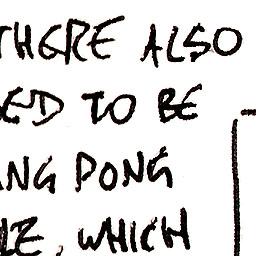 THERE ALSO
TO BE
PONG
WHICH